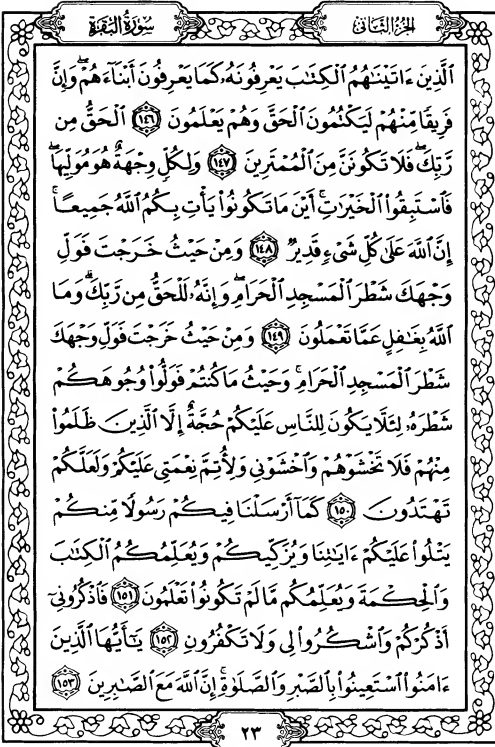 سُورَةُ البَقَرَةِ
الجُزءُ الثَّانِى
الَّذِينَ ءَاتَيْنَٰهُمُ الْكِتَٰبَ يَعْرِفُونَهُۥ كَمَا يَعْرِفُونَ أَبْنَآءَهُمْ ۖ وَإِنَّ
فَرِيقًا مِّنْهُمْ لَيَكْتُمُونَ الْحَقَّ وَهُمْ يَعْلَمُونَ ١٤٦ الْحَقُّ مِن
رَّبِّكَ ۖ فَلَا تَكُونَنَّ مِنَ الْمُمْتَرِينَ ١٤٧ وَلِكُلٍّ وِجْهَةٌ هُوَ مُوَلِّيهَا ۖ
فَاسْتَبِقُوا۟ الْخَيْرَٰتِ ۚ أَيْنَ مَا تَكُونُوا۟ يَأْتِ بِكُمُ اللَّهُ جَمِيعًا ۚ
إِنَّ اللَّهَ عَلَىٰ كُلِّ شَىْءٍ قَدِيرٌ ١٤٨ وَمِنْ حَيْثُ خَرَجْتَ فَوَلِّ
وَجْهَكَ شَطْرَ الْمَسْجِدِ الْحَرَامِ ۖ وَإِنَّهُۥ لَلْحَقُّ مِن رَّبِّكَ ۗ وَمَا
اللَّهُ بِغَٰفِلٍ عَمَّا تَعْمَلُونَ ١٤٩ وَمِنْ حَيْثُ خَرَجْتَ فَوَلِّ وَجْهَكَ
شَطْرَ الْمَسْجِدِ الْحَرَامِ ۚ وَحَيْثُ مَا كُنتُمْ فَوَلُّوا۟ وُجُوهَكُمْ
شَطْرَهُۥ لِئَلَّا يَكُونَ لِلنَّاسِ عَلَيْكُمْ حُجَّةٌ إِلَّا الَّذِينَ ظَلَمُوا۟
مِنْهُمْ فَلَا تَخْشَوْهُمْ وَاخْشَوْنِى وَلِأُتِمَّ نِعْمَتِى عَلَيْكُمْ وَلَعَلَّكُمْ
تَهْتَدُونَ ١٥٠ كَمَآ أَرْسَلْنَا فِيكُمْ رَسُولًا مِّنكُمْ
يَتْلُوا۟ عَلَيْكُمْ ءَايَٰتِنَا وَيُزَكِّيكُمْ وَيُعَلِّمُكُمُ الْكِتَٰبَ
وَالْحِكْمَةَ وَيُعَلِّمُكُم مَّا لَمْ تَكُونُوا۟ تَعْلَمُونَ ١٥١ فَاذْكُرُونِىٓ
أَذْكُرْكُمْ وَاشْكُرُوا۟ لِى وَلَا تَكْفُرُونِ ١٥٢ يَٰٓأَيُّهَا الَّذِينَ
ءَامَنُوا۟ اسْتَعِينُوا۟ بِالصَّبْرِ وَالصَّلَوٰةِ ۚ إِنَّ اللَّهَ مَعَ الصَّٰبِرِينَ ١٥٣
٢٣